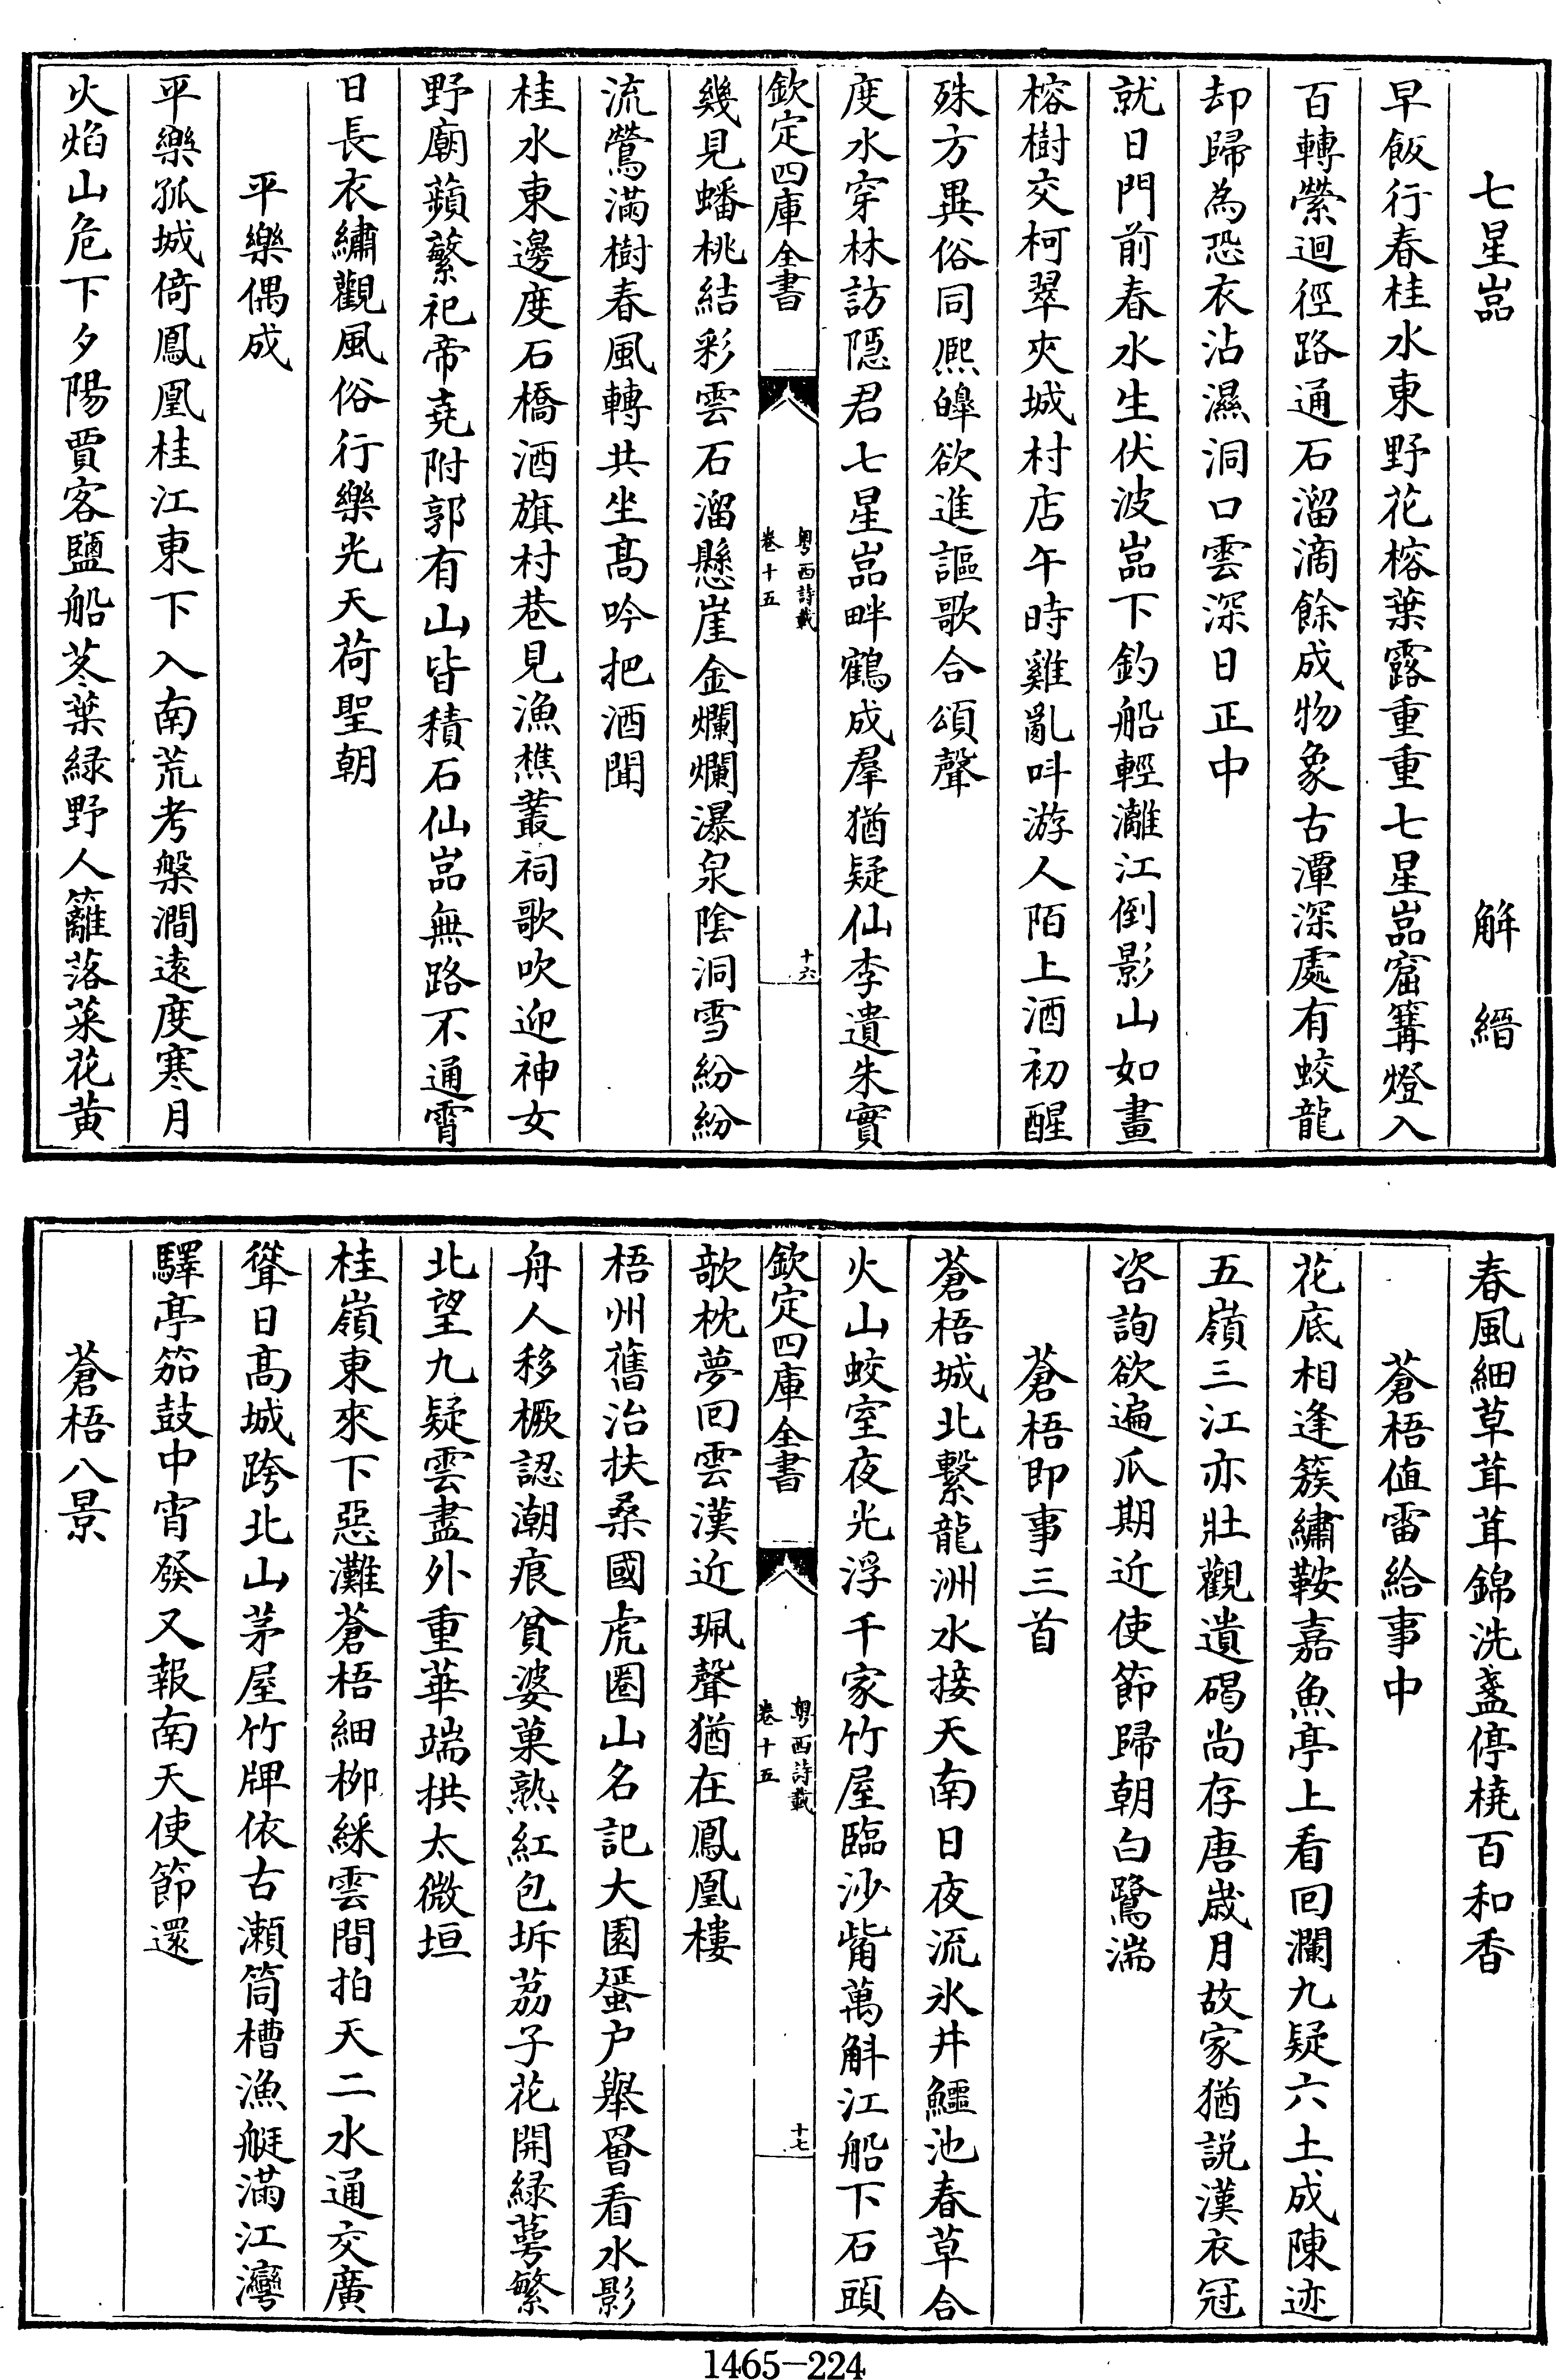 七星嵓　解縉
早飯行春桂水東野花榕葉露重重七星嵓窟篝燈入
百轉縈迴徑路通石溜滴餘成物象古潭深處有蛟龍
却歸為恐衣沾濕洞口雲深日正中
就日門前春水生伏波嵓下釣船輕灕江倒影山如畫
榕樹交柯翠夾城村店午時雞亂叫游人陌上酒初醒
殊方異俗同熈皥欲進謳歌合頌聲
度水穿林訪隱君七星嵓畔鶴成羣猶疑仙李遺朱實
欽定四庫全書
粤西詩載
卷十五
十六
幾見蟠桃結彩雲石溜懸崖金爛爛瀑泉陰洞雪紛紛
流鶯滿樹春風轉共坐髙吟把酒聞
桂水東邊度石橋酒旗村巷見漁樵叢祠歌吹迎神女
野廟蘋蘩祀帝堯附郭有山皆積石仙嵓無路不通霄
日長衣繡觀風俗行樂光天荷聖朝
平樂偶成
平樂孤城倚鳳凰桂江東下入南荒考槃澗遠度寒月
火焰山危下夕陽賈客鹽船苳葉緑野人籬落菜花黄
春風細草茸茸錦洗盞停橈百和香
蒼梧值雷給事中
花底相逢簇繡鞍嘉魚亭上看回瀾九疑六土成陳迹
五嶺三江亦壯觀遺碣尚存唐歲月故家猶説漢衣冠
咨詢欲遍爪期近使節歸朝白鷺湍
蒼梧即事三首
蒼梧城北繫龍洲水接天南日夜流氷井鱷池春草合
火山蛟室夜光浮千家竹屋臨沙觜萬斛江船下石頭
欽定四庫全書
粤西詩載
卷十五
十七
欹枕夢回雲漢近珮聲猶在鳳凰樓
梧州舊治扶桑國虎圈山名記大園蜑户舉罾看水影
舟人移橛認潮痕貧婆菓熟紅包坼荔子花開緑萼繁
北望九疑雲盡外重華端拱太微垣
桂嶺東來下惡灘蒼梧細栁綵雲間拍天二水通交廣
聳日髙城跨北山茅屋竹牌依古瀬筒槽漁艇滿江灣
驛亭笳鼓中宵發又報南天使節還
蒼梧八景
1465-224